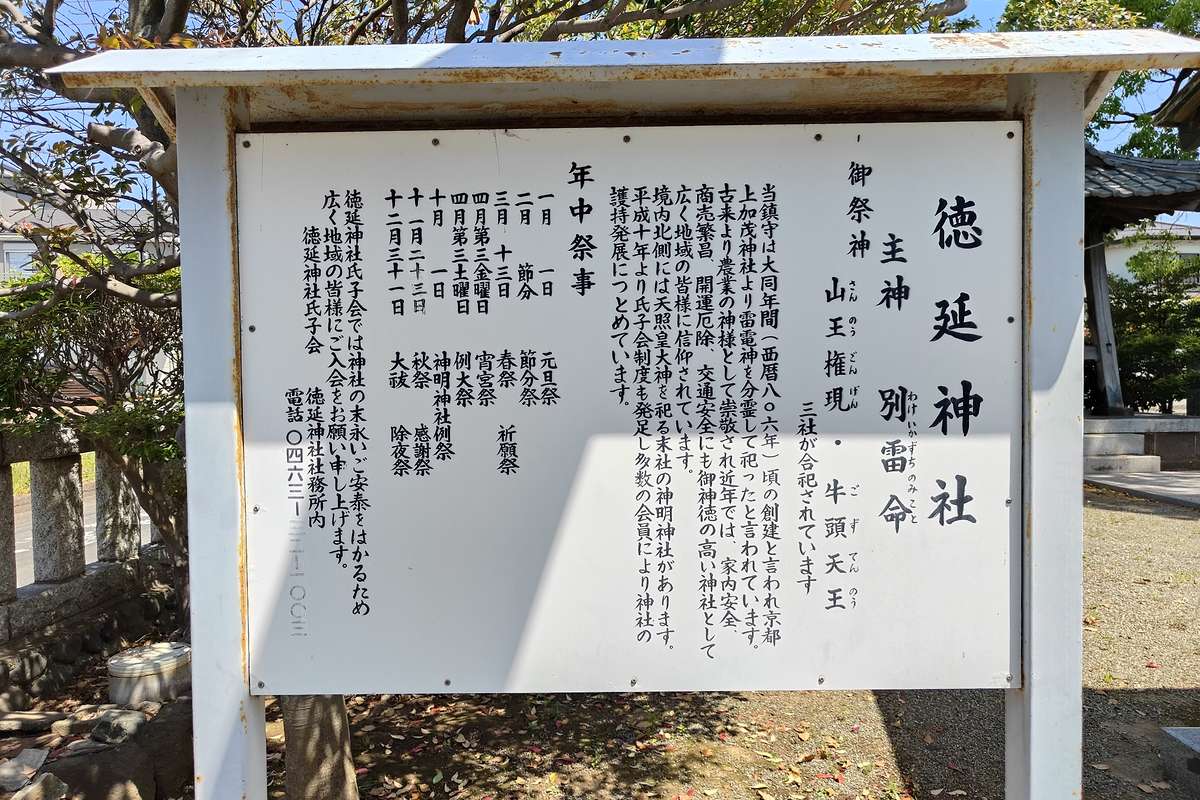 徳延神社
御祭神
主神 別雷命
わけいかずちのみこと
山王権現・牛頭天王
さんのうごんげん
ごずてんのう
三社が合祀されています
当鎮守は大同年間(西暦八〇六年)頃の創建と言われ京都
上加茂神社より雷電神を分霊して祀ったと言われています。
古来より農業の神様として崇敬され近年では、家内安全、
商売繁昌、開運厄除、交通安全にも御神徳の高い神社として
広く地域の皆様に信仰されています。
境内北側には天照皇大神を祀る末社の神明神社があります。
平成十年より氏子会制度も発足し多数の会員により神社の
護持発展につとめています。
年中祭事
一月 一日 元旦祭
二月 節分 節分祭
三月 十三日 春祭 祈願祭
四月第三金曜日 宵宮祭
四月第三土曜日 例大祭
十月 一日 神明神社例祭
十一月二十三日 秋祭 感謝祭
十二月三十一日 大祓 除夜祭
徳延神社氏子会では神社の末永いご安泰をはかるため
広く地域の皆様にご入会をお願い申し上げます。
徳延神社氏子会 徳延神社社務所内
電話 〇四六三ー